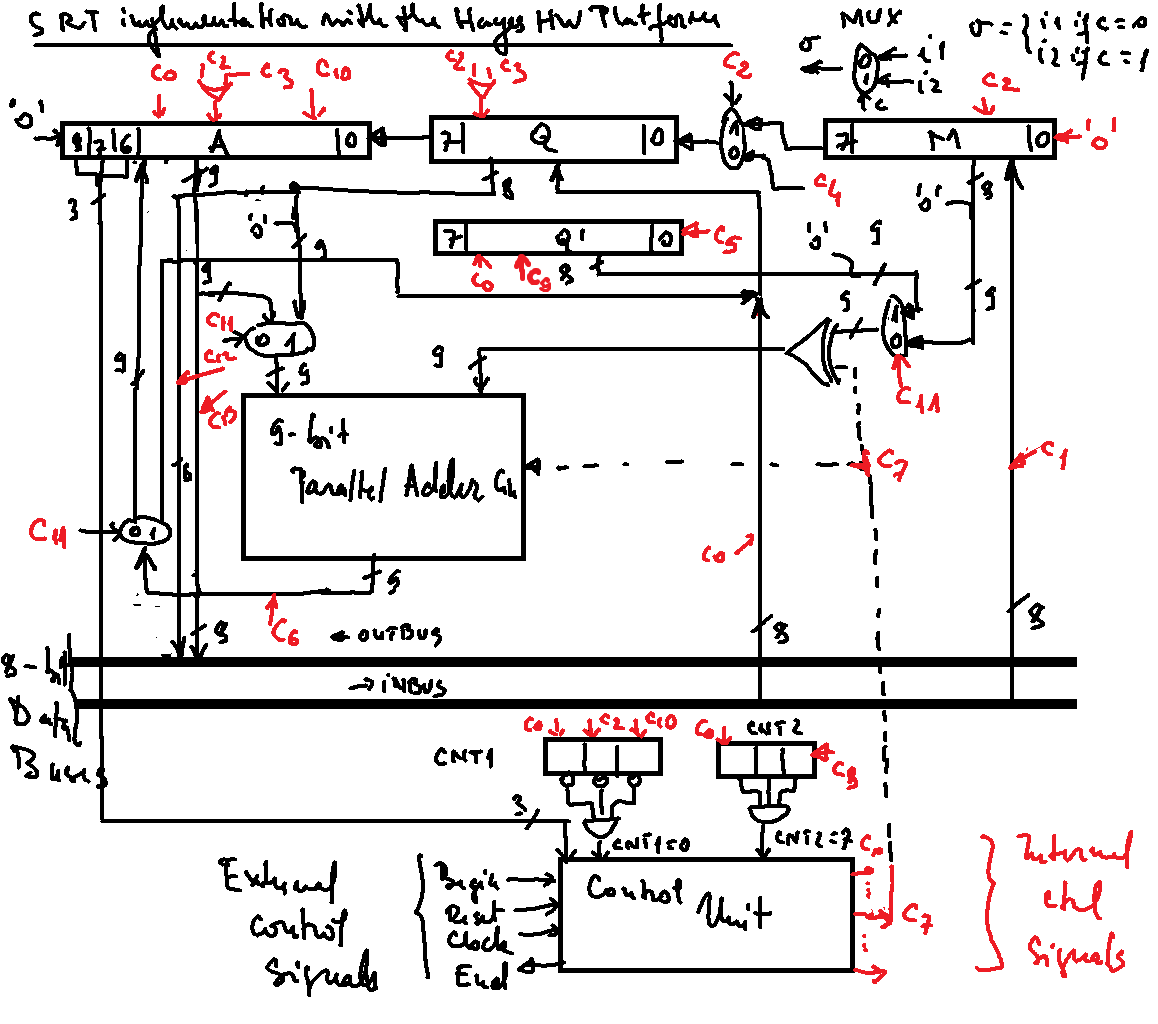 SRT implementation with the Hayes HW Platform
MUX
σ = { i1 if c=0
i2 if c=1
σ
0
1
i1
i2
c
c0
c2
c3
c10
c2
c3
c2
c2
'0'
8 7 6 A 0
7 Q 0
1
0
7 M 0
'0'
c4
3
9
8
8
'0'
'0'
'0'
9
9
9
7 Q' 0
c5
c0
c9
8
9
9
9
c11
0 1
9
9
1
0
c12
c11
9
9-bit
Parallel Adder
c7
c1
c11
0 1
c0
9
c6
8
8
8
← OUTBUS
8-bit
Data
Buses
→ INBUS
c0
c2
c10
c0
CNT2
CNT1
3
CNT1=0
CNT2=7
External
control
signals
Begin
Reset
Clock
End
Control
Unit
c0
c7
Internal
ctrl
signals